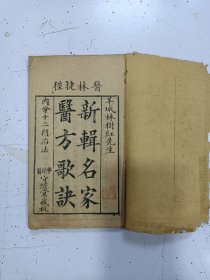 醫林捷徑
羊城林樹紅先生
新輯名家
醫方歌訣
內分十二門治法
守經堂藏板